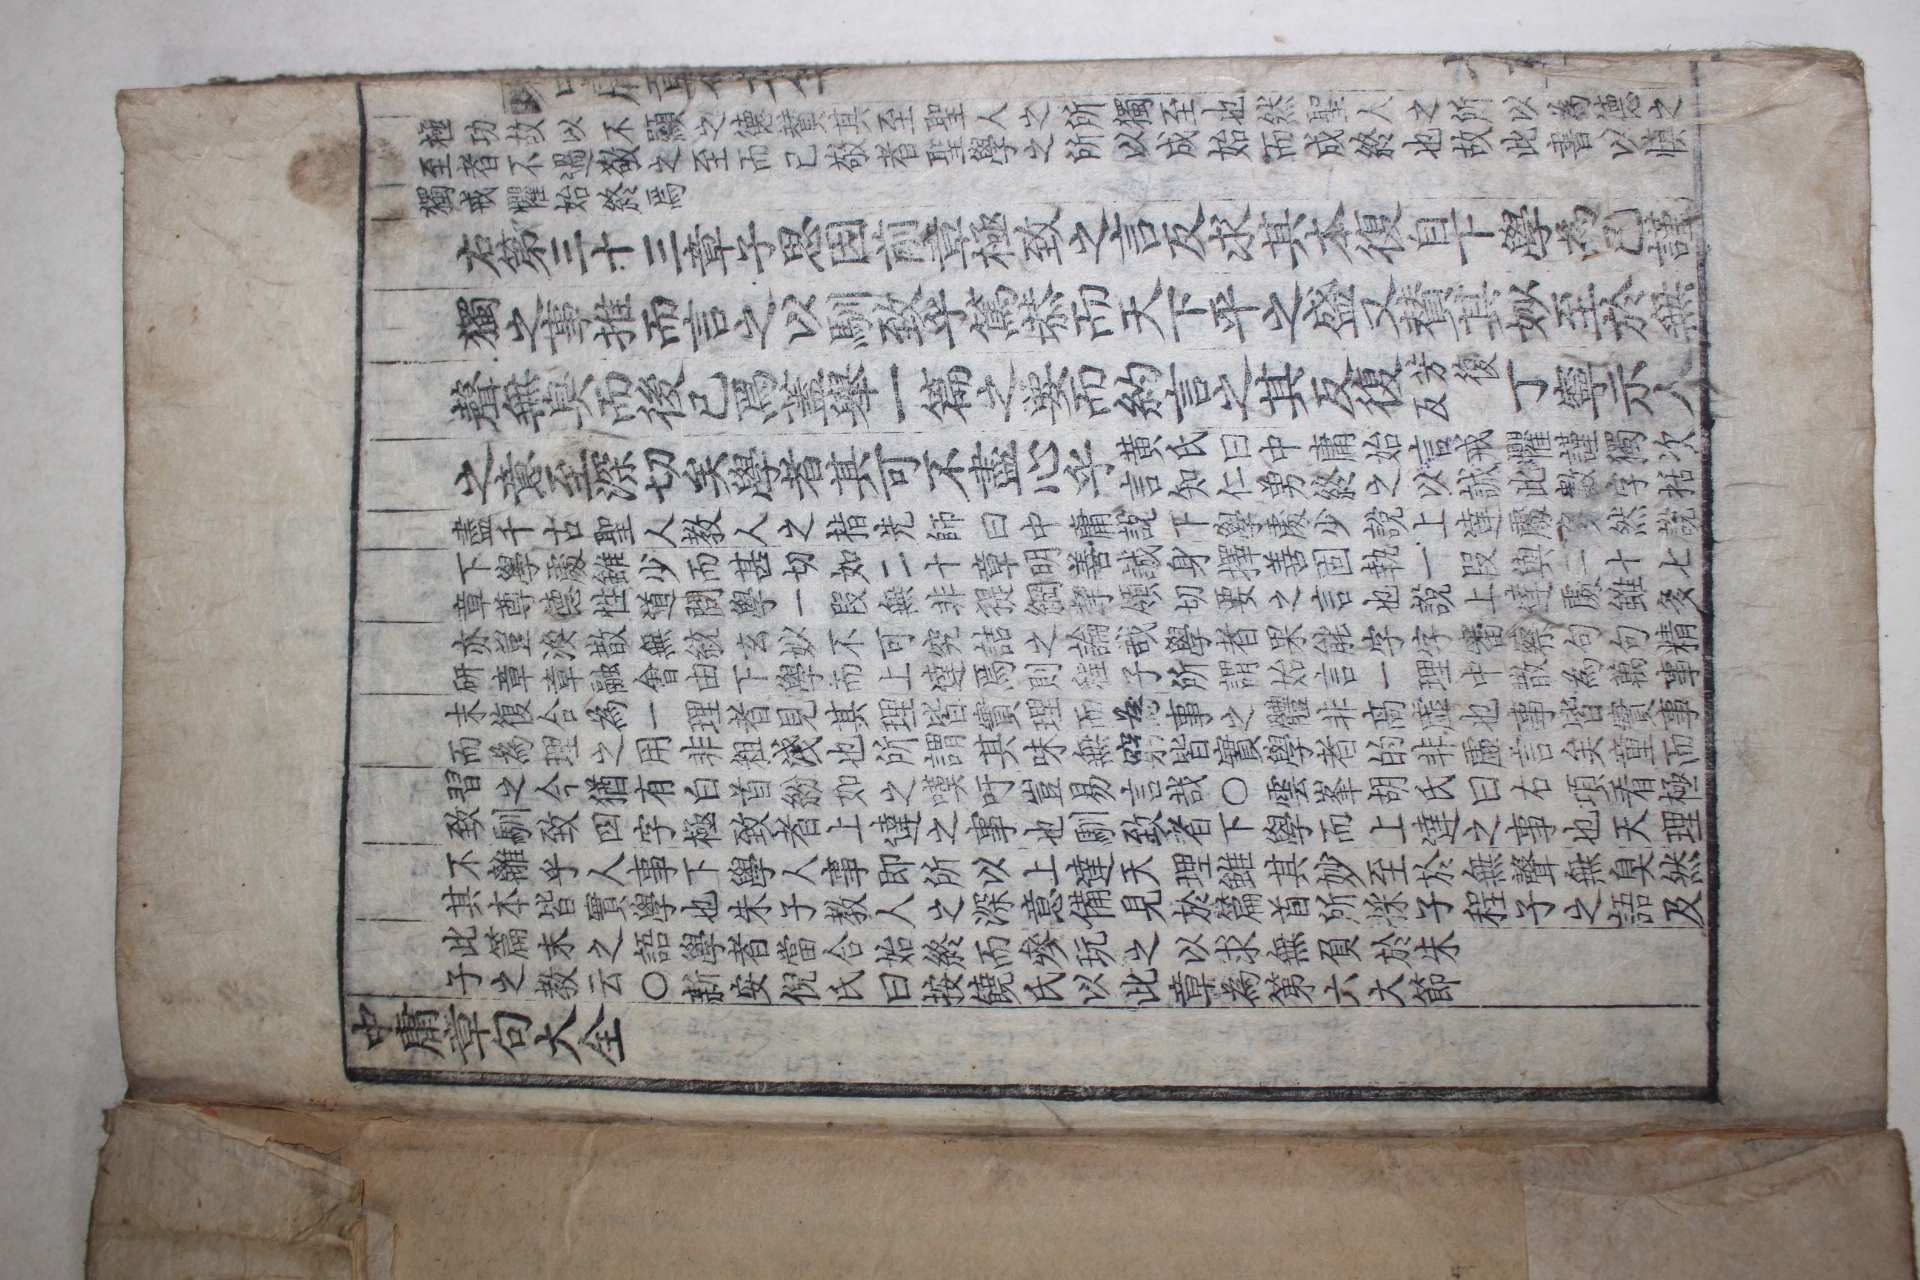 中庸章句大全
極功故以不顯之德贊其至聖人之所獨至也然聖人之所以為德之
至者不過敬之至而已敬者聖學之所以成始而成終也故此書以慎
獨戒懼始終焉
右第三十三章子思因前章極致之言反求其本復自下學為己謹
獨之事推而言之以馴致乎篤恭而天下平之盛又贊其妙至於無
聲無臭而後已焉蓋舉一篇之要而約言之其反復芳復反丁寧示人
之意至深切矣學者其可不盡心乎黃氏曰中庸始言戒懼謹獨次
言知仁勇終之以誠此數字括
盡千古聖人教人之指先師曰中庸說下學處少說上達處多然說
下學處雖少而甚切如二十章明善誠身擇善固執一段與二十七
章尊德性道問學一段無非提綱挈領切要之言也說上達處雖多
亦豈渙散無統玄妙不可究詰之論哉學者果能字字審察句句精
研章章融會由下學而上達焉則程子所謂始言一理中散為萬事
末復合為一理者見其理皆實理而為事之體非高虛也事皆實事
而為理之用非粗淺也所謂其味無窮皆實學者的非虛言矣童而
習之今猶有白首紛如之嘆吁豈易言哉○雲峯胡氏曰右項看極
致馴致四字極致者上達之事也馴致者下學而上達之事也天理
不離乎人事下學人事即所以上達天理雖其妙至於無聲無臭然
其本皆實學也朱子教人之深意備見於篇首所採子程子之語及
此篇末之語學者當合始終而參玩之以求無負於朱
子之教云○新安倪氏曰按饒氏以此章為第六大節
中庸章句大全